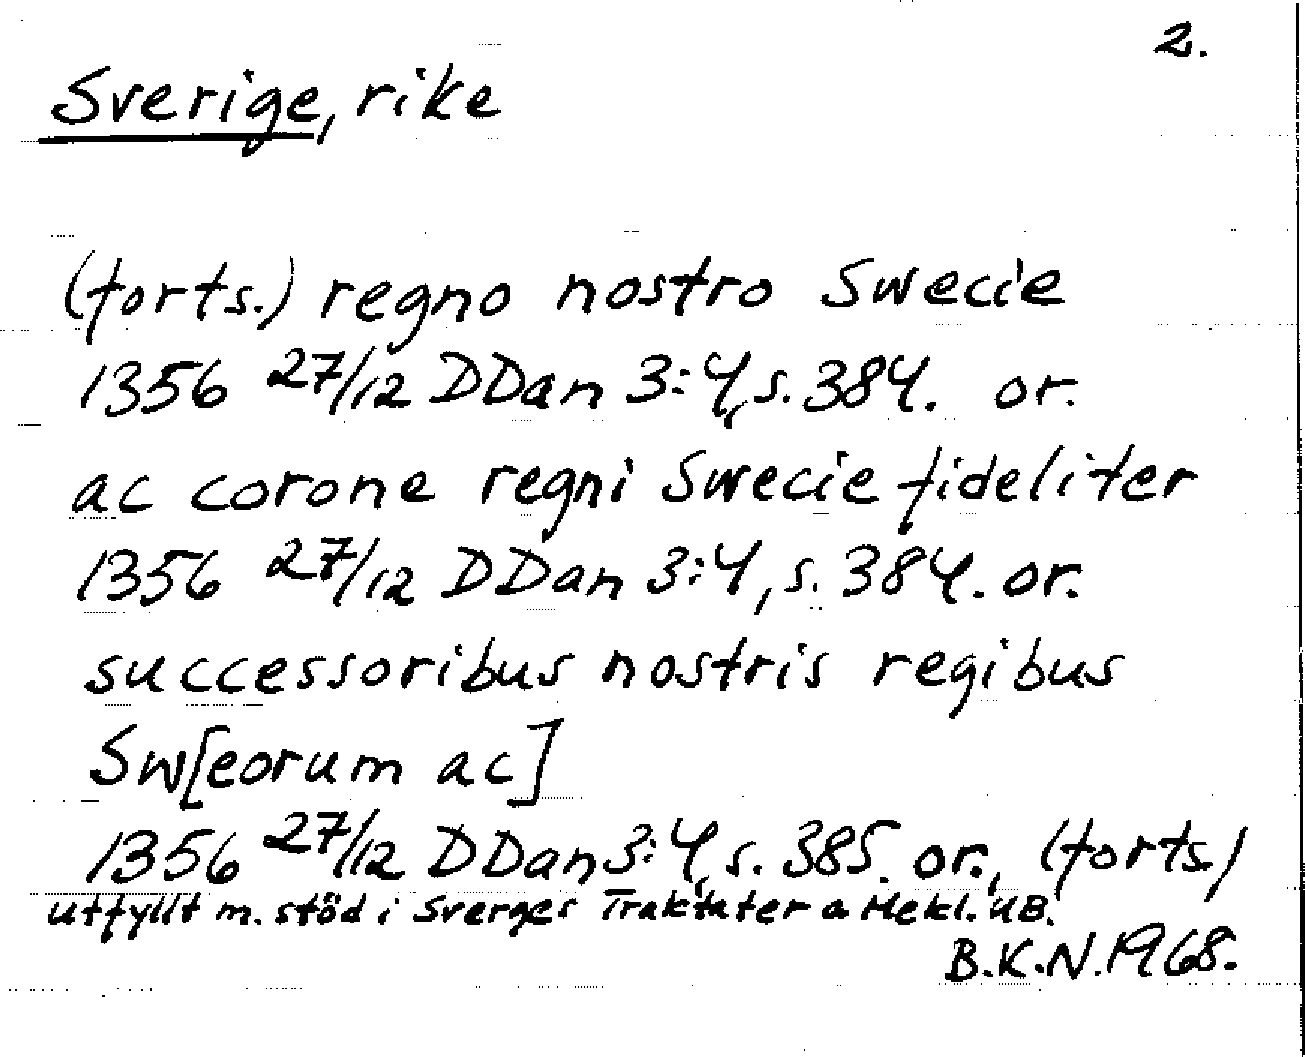 2.
Sverige, rike
(forts.) regno nostro Swecie
1356 27/12 DDan 3:4, s. 384. or.
ac corone regni Swecie fideliter
1356 27/12 DDan 3:4, s. 384. or.
successoribus nostris regibus
Sw[eorum ac]
1356 27/12 DDan 3:4, s. 385. or., (forts)
utfyllt m. stöd i Sverges Traktater o Mekl. UB.
B.K.N. 1968.